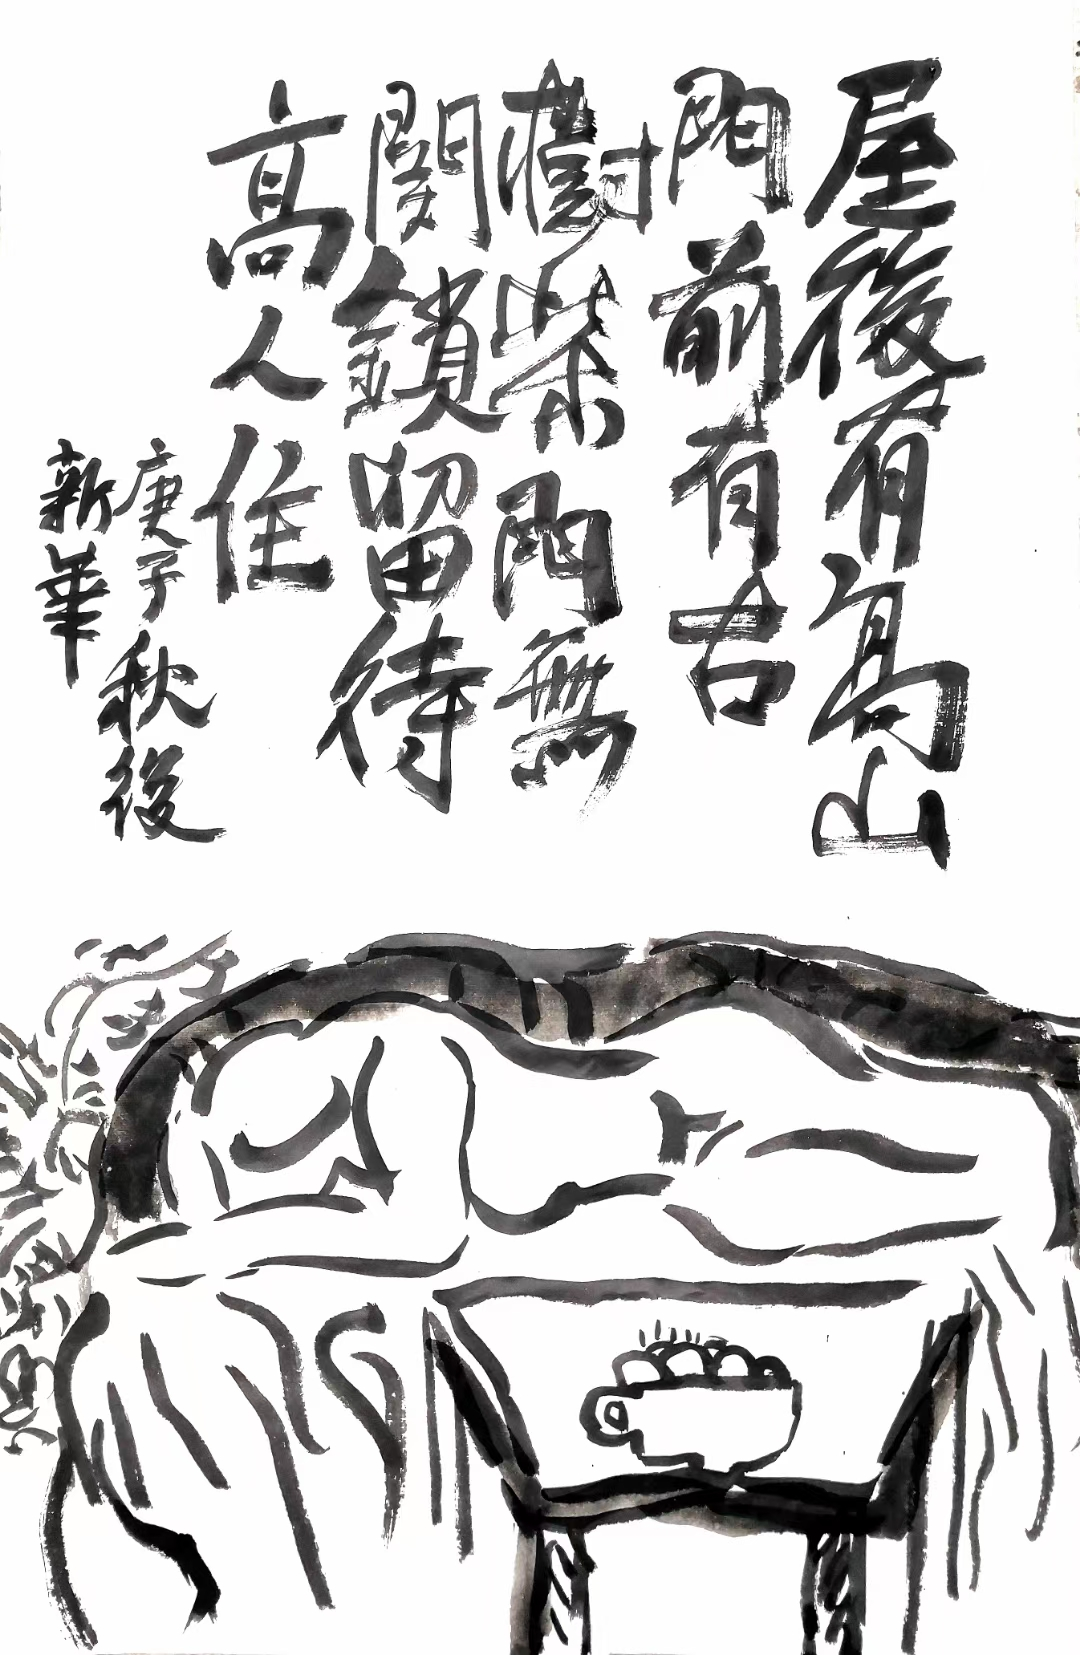 屋後有高山
門前有古
樹柴門無
関鎖留待
高人住
庚子秋後
新華